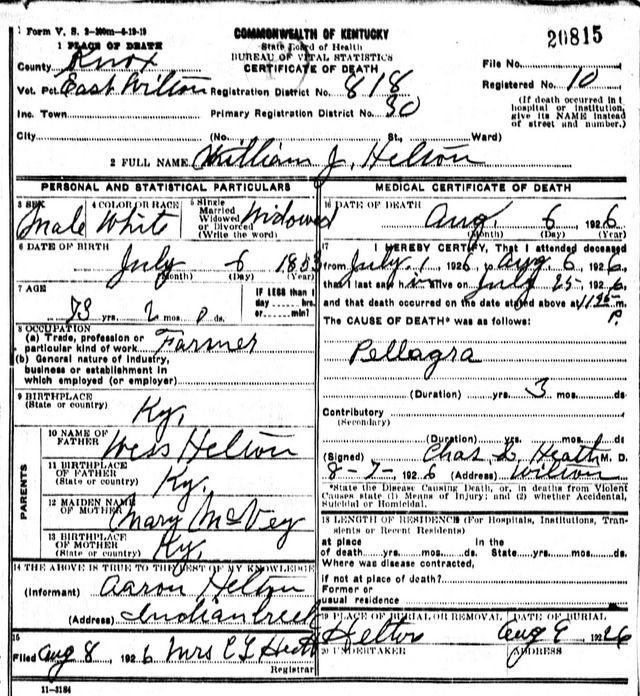 Form V. S. 2-200m-6-19-19
COMMONWEALTH OF KENTUCKY
State Board of Health
BUREAU OF VITAL STATISTICS
CERTIFICATE OF DEATH
20815
1 PLACE OF DEATH
County Knox
File No.
Vot. Pct. East Wilton Registration District No. 818
Registered No. 10
Inc. Town Primary Registration District No. 30
(If death occurred in hospital or institution, give its NAME instead of street and number.)
City (No. St., Ward)
2 FULL NAME William J. Helton
PERSONAL AND STATISTICAL PARTICULARS
3 SEX Male
4 COLOR OR RACE White
5 Single Married Widowed or Divorced (Write the word) Widowed
6 DATE OF BIRTH
July 6 1853
(Month) (Day) (Year)
7 AGE
73 yrs. mos. ds.
IF LESS than 1 day hrs. or min.?
8 OCCUPATION
(a) Trade, profession or particular kind of work Farmer
(b) General nature of industry, business or establishment in which employed (or employer)
9 BIRTHPLACE
(State or country) Ky.
PARENTS
10 NAME OF FATHER Wess Helton
11 BIRTHPLACE OF FATHER
(State or country) Ky.
12 MAIDEN NAME OF MOTHER Mary McVey
13 BIRTHPLACE OF MOTHER
(State or country) Ky.
14 THE ABOVE IS TRUE TO THE BEST OF MY KNOWLEDGE
(Informant) Aaron Helton
(Address) Indian Creek
15
Filed Aug 8, 1926 Mrs
Registrar
11-3184
MEDICAL CERTIFICATE OF DEATH
16 DATE OF DEATH
Aug 6 1926
(Month) (Day) (Year)
17 I HEREBY CERTIFY, That I attended deceased
from July 1 1926 to Aug 6 1926,
that I last saw h alive on July 25- 1926
and that death occurred on the date stated above at m.
P.
The CAUSE OF DEATH* was as follows:
Pellagra
(Duration) yrs. 3 mos. ds.
Contributory
(Secondary)
(Duration) yrs. mos. ds.
(Signed) Chas L. Heath M. D.
8-7-1926 (Address) Wilton
*State the Disease Causing Death, or, in deaths from Violent Causes state (1) Means of Injury; and (2) whether Accidental, Suicidal or Homicidal.
18 LENGTH OF RESIDENCE (For Hospitals, Institutions, Transients or Recent Residents)
at place of death yrs. mos. ds. In the State yrs. mos. ds.
Where was disease contracted,
if not at place of death?
Former or
usual residence
19 PLACE OF BURIAL OR REMOVAL DATE OF BURIAL
Helton Aug 1926
20 UNDERTAKER ADDRESS